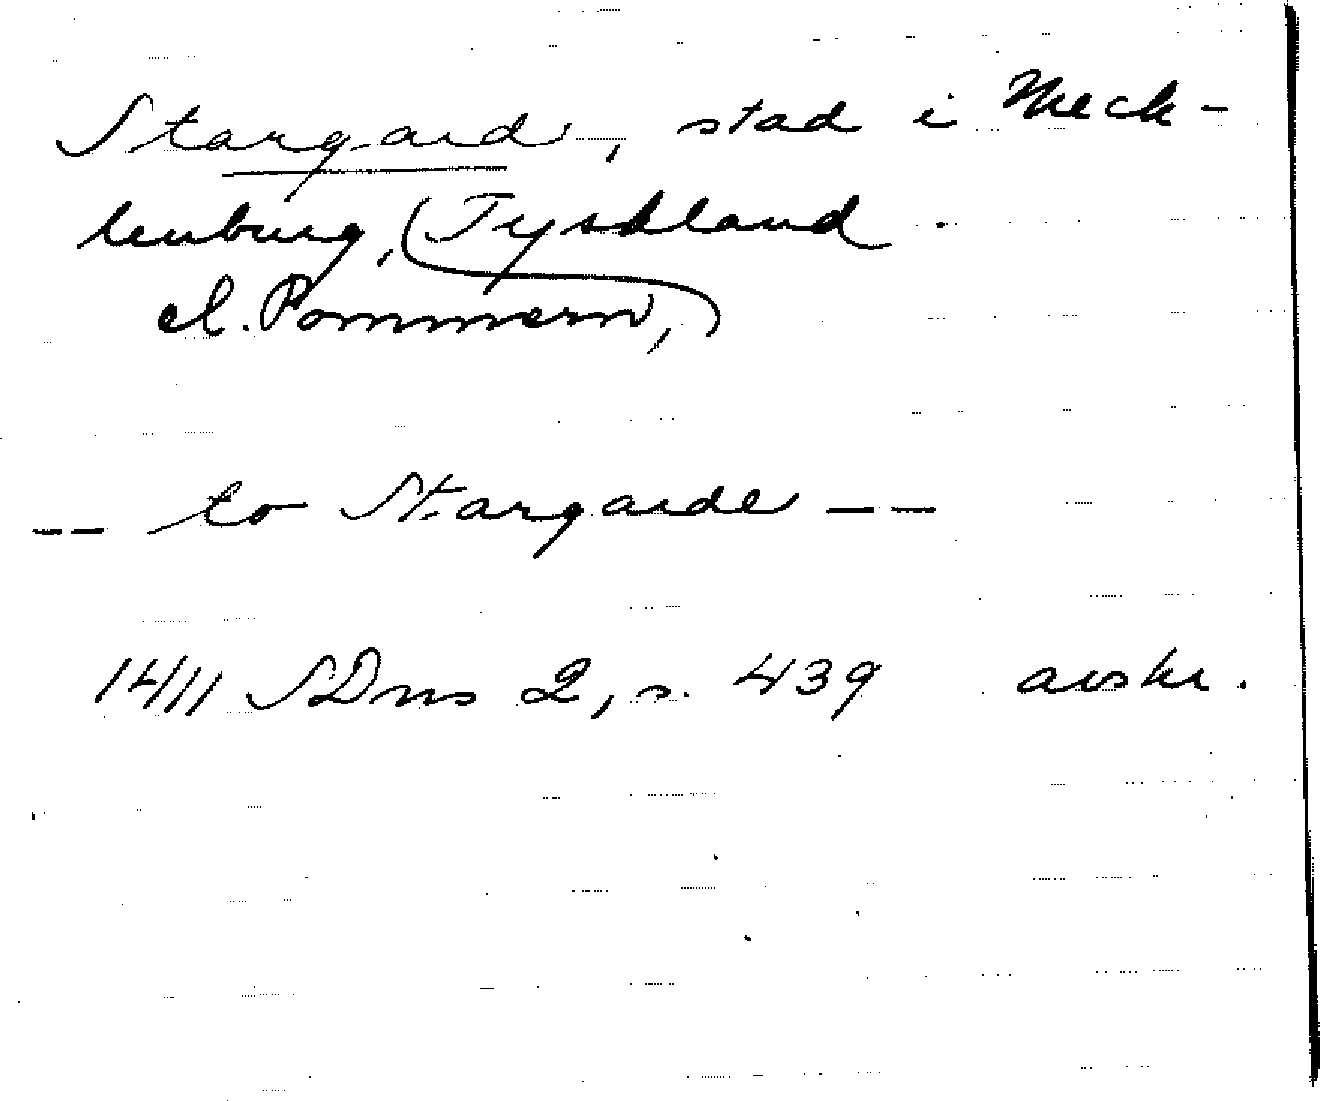 Stargard, stad i Meck-
lenburg, Tyskland.
el. Pommern,
-- to Stargarde --
1411 SDns 2, s. 439 avskr.